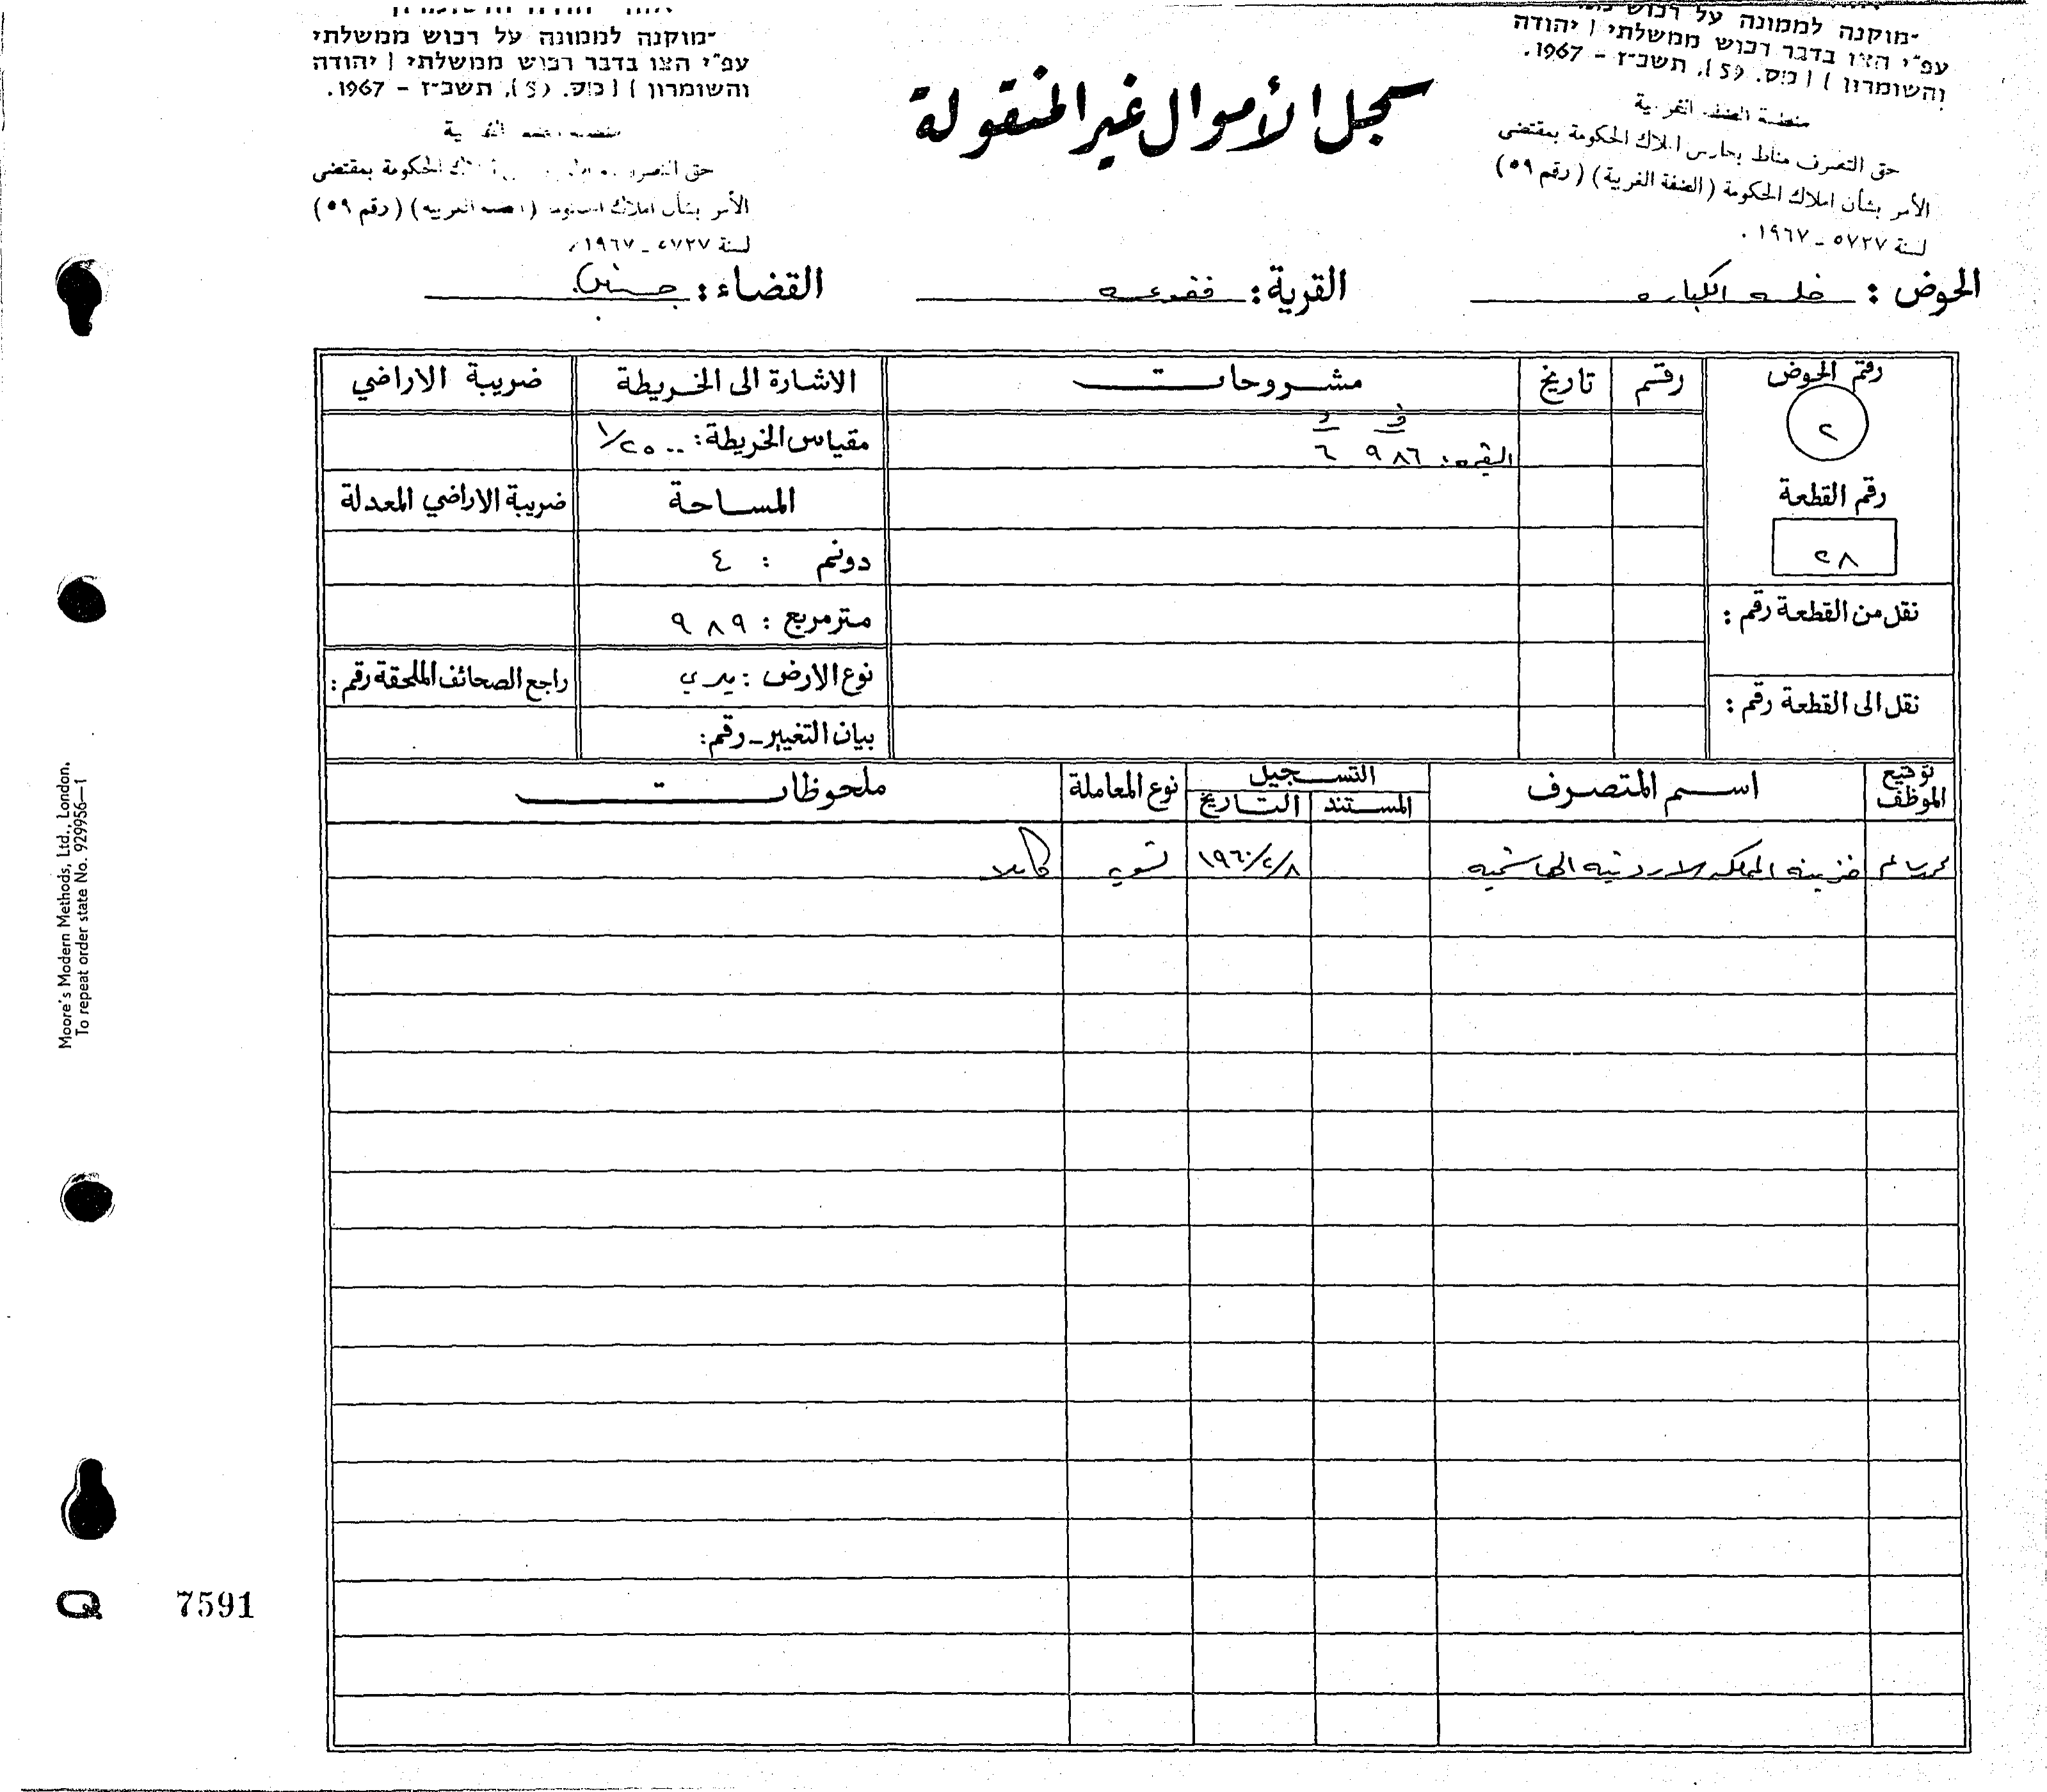 מוקנה לממונה על רכוש ממשלתי
עפ"י הצו בדבר רכוש ממשלתי ( יהודה
והשומרון ) ( מס. 59 ), תשכ"ז - 1967.
منطقة الضفة الغربية
حق التصرف مناط بحارس املاك الحكومة بمقتضى
الأمر بشأن املاك الحكومة (الضفة الغربية) (رقم ٥٩)
لسنة ٥٧٢٧ - ١٩٦٧ .
سجل الأموال غير المنقولة
מוקנה לממונה על רכוש ממשלתי
עפ"י הצו בדבר רכוש ממשלתי ( יהודה
והשומרון ) ( מס. 59 ), תשכ"ז - 1967.
الغربية
حق التصرف املاك الحكومة بمقتضى
الأمر بشأن املاك الحكومة (الضفة الغربية) (رقم ٥٩)
لسنة ٥٧٢٧ - ١٩٦٧ .
الحوض : خلة الكباره القرية : فقوعه القضاء : جنين
رقم الحوض رقم تاريخ مشروحات الاشارة الى الخريطة ضريبة الاراضي
٢
القيمه: ٩٨٦ ٦
مقياس الخريطة : ١/٢٥٠٠
رقم القطعة
٢٨
المساحة ضريبة الاراضي المعدلة
دونم : ٤
نقل من القطعة رقم :
متر مربع : ٩٨٩
نوع الارض : ميري راجع الصحائف الملحقة رقم :
نقل الى القطعة رقم :
بيان التغيير - رقم :
توقيع الموظف اسم المتصرف التسجيل نوع المعاملة ملحوظات
المستند التاريخ
خزينة المملكه الاردنيه الهاشميه ١٩٦٠/٢/٨ تسويه كاملا
Moore's Modern Methods, Ltd., London.
To repeat order state No. 929956—1
Q 7591